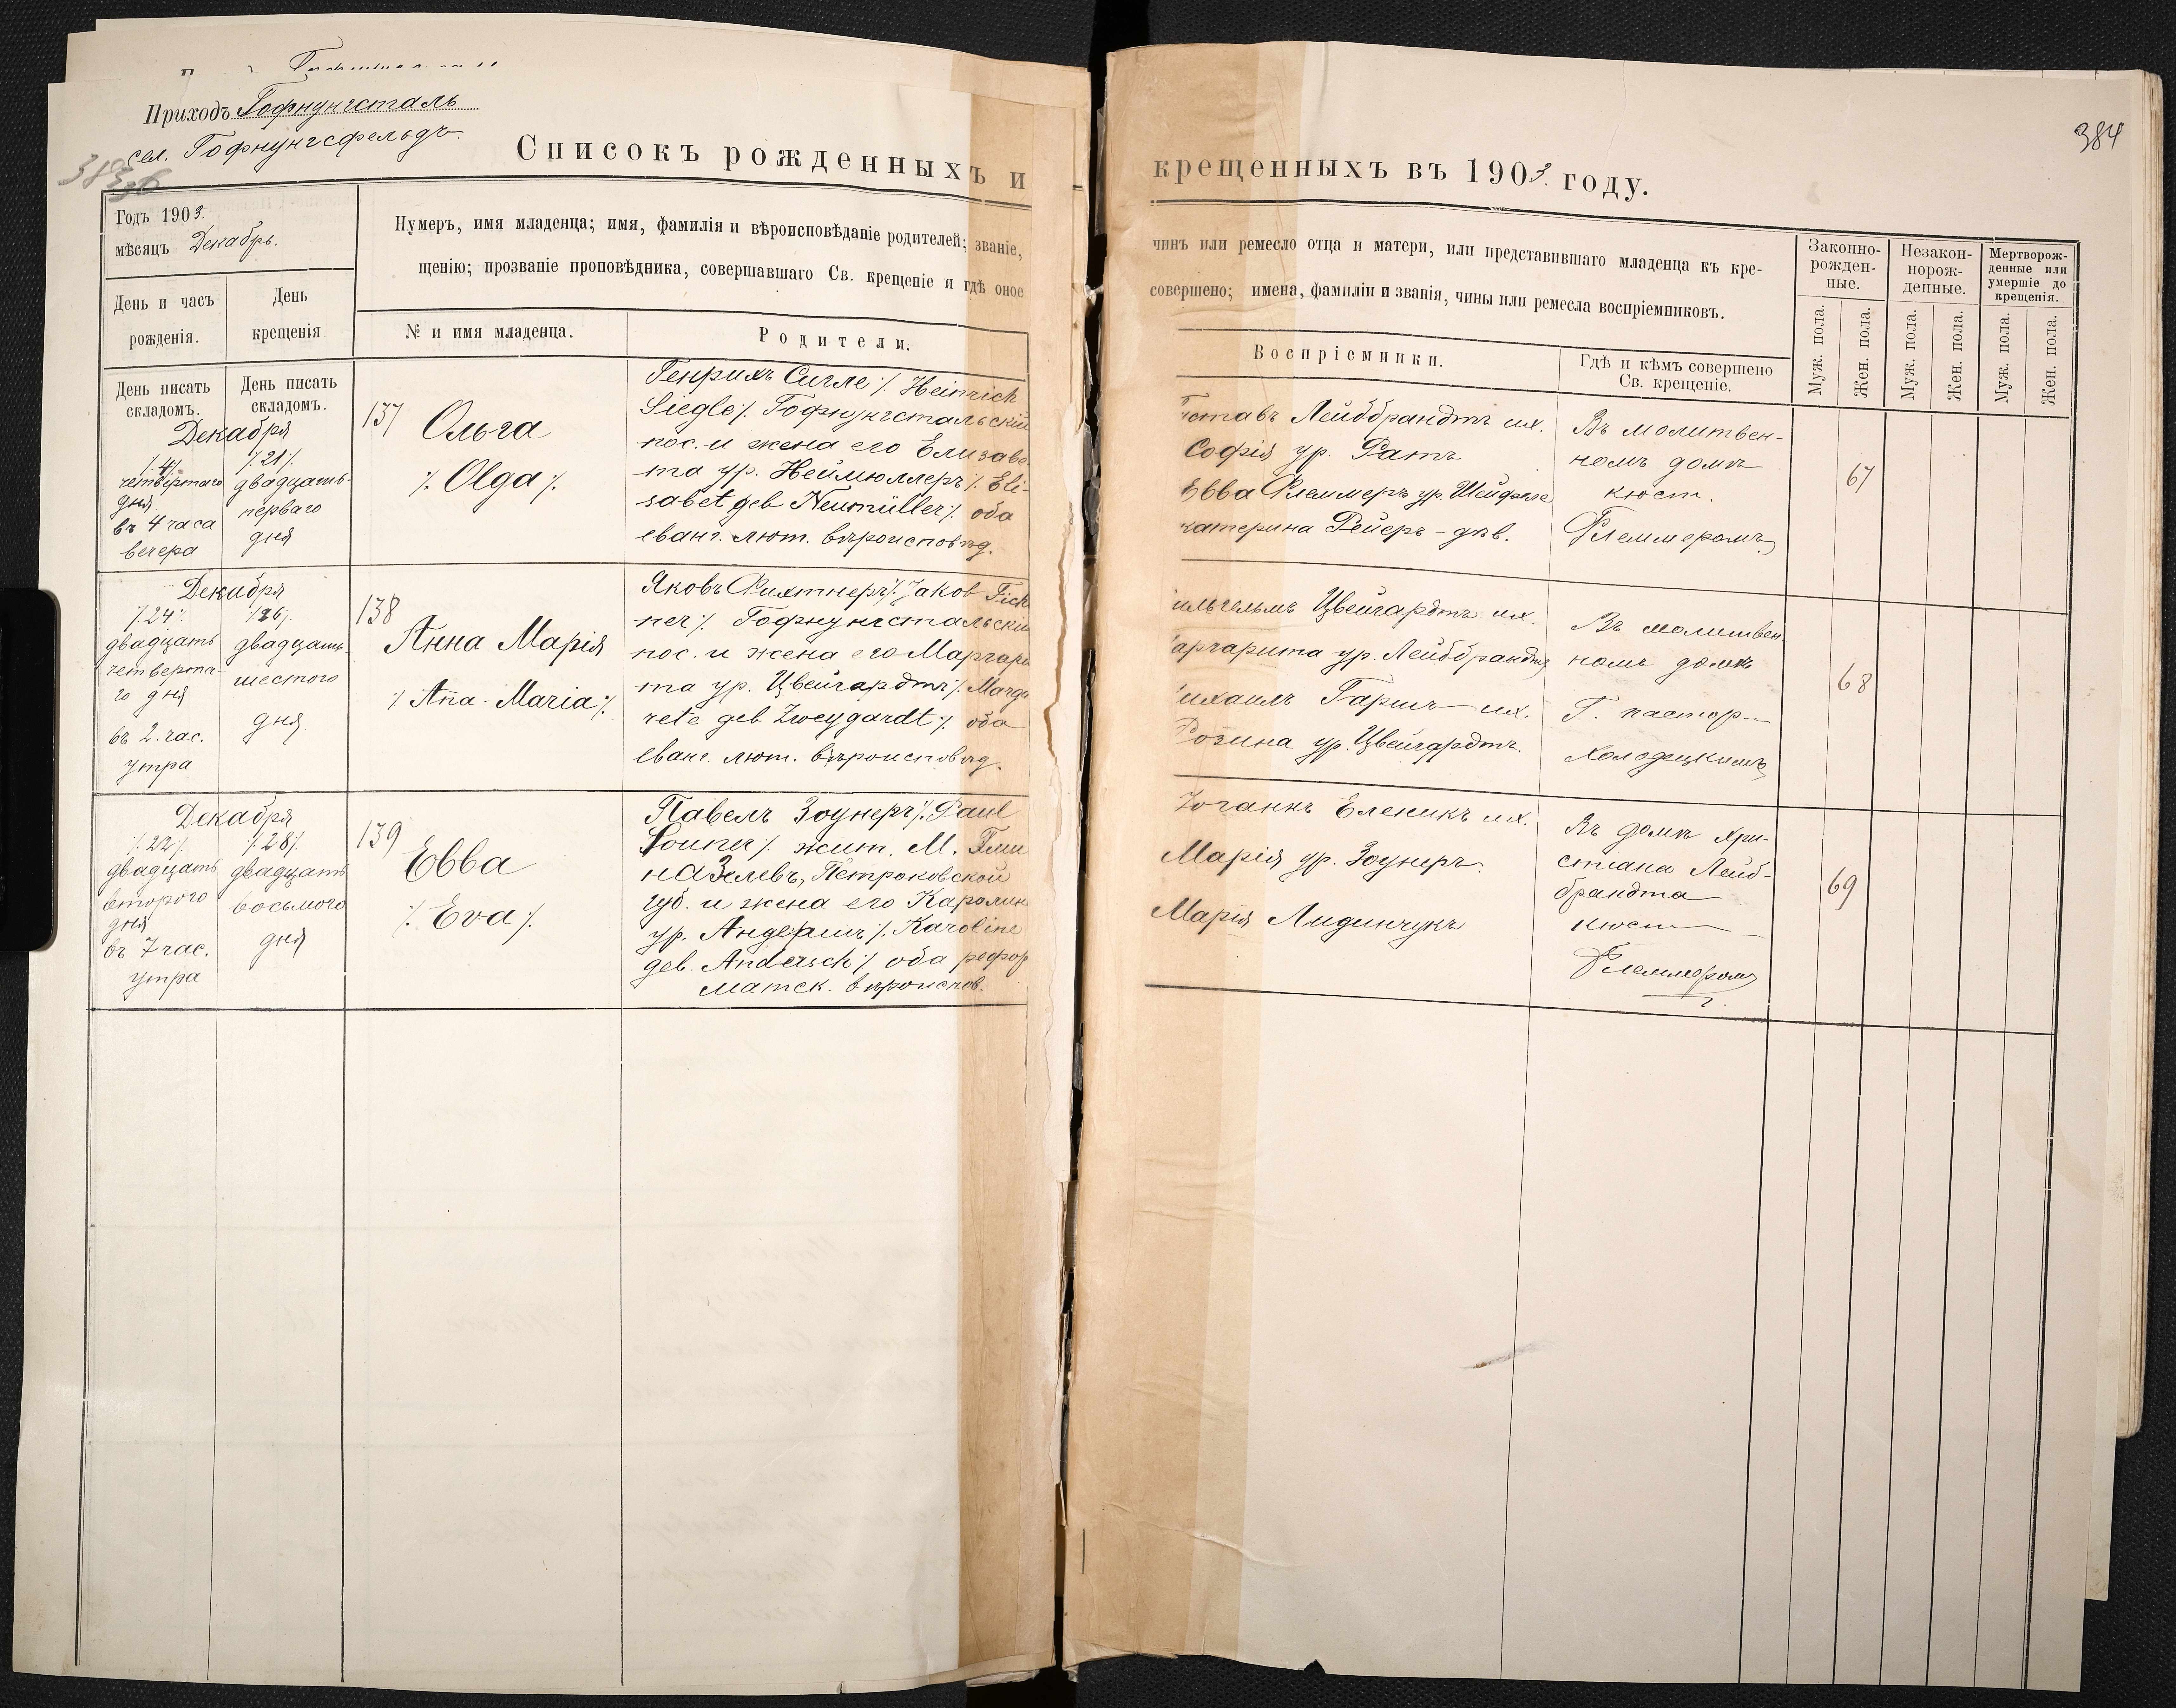 Приходъ Гофнунгсталь
сел. Гофнунгсфельдъ.
Списокъ рожденныхъ и
Годъ 1903.
мѣсяцъ Декабрь.
Нумеръ, имя младенца; имя, фамилія и вѣроисповѣданіе родителей; званіе,
щенію; прозваніе проповѣдника, совершавшаго Св. крещеніе и гдѣ оное
День и часъ
рожденія.
День
крещенія
№ и имя младенца.
Родители.
День писать
складомъ.
День писать
складомъ.
Декабря
/.4/.
четвертаго
дня
въ 4 часа
вечера
/.21/.
двадцать-
перваго
дня
137
Ольга
/. Olga /.
Генрихъ Сигле /. Heinrich
Siegle /. Гофнунгстальскій
пос. и жена его Елизаве
та ур. Неймюллеръ /. Eli-
sabet geb Neumüller /. оба
еванг. лют. вѣроисповѣд.
Декабря
/.24/.
двадцать
четверта-
го дня
въ 2 час.
утра
/.26/.
двадцать-
шестого
дня
138
Анна Марія
/. Aña-Maria /.
Яковъ Фихтнеръ /. Jakob Fich
ner /. Гофнунгстальскій
пос. и жена его Маргари
та ур. Цвейгардтъ /. Marga
rete geb Zweygardt /. оба
еванг. лют. вѣроисповѣд.
Декабря
/.22/.
двадцать
второго
дня
въ 7 час.
утра
/.28/.
двадцать
восьмого
дня
139
Евва
/. Eva /.
Павелъ Зоунеръ /. Paul
Souner /. жит. М.
Петроковской
губ. и жена его Каролин
ур. Андершъ /. Karoline
geb. Andersch /. оба рефор
матск. вѣроиспов.
384
крещенныхъ въ 1903. году.
чинъ или ремесло отца и матери, или представившаго младенца къ кре-
совершено; имена, фамиліи и званія, чины или ремесла воспріемниковъ.
Воспріемники.
Гдѣ и кѣмъ совершено
Св. крещеніе.
Законно-
рожден-
ные.
Незакон-
норож-
денные.
Мертворож-
денные или
умершіе до
крещенія.
Муж. пола.
Жен. пола.
Муж. пола.
Жен. пола.
Муж. пола.
Жен. пола.
ставъ Лейббрандтъ их.
Софія ур. Ратъ
Евва Флеммеръ ур. Шейфеле
катерина Рейеръ - дѣв.
Въ молитвен-
номъ домѣ
кюст.
Флеммеромъ
67
ильгельмъ Цвейгардтъ их.
аргарита ур. Лейббрандтъ
ихаилъ Гаришъ их.
Розина ур. Цвейгардтъ.
Въ молитвен
номъ домѣ
Г. пастор-
Холодецкимъ
68
Іоганнъ Еленикъ их.
Марія ур. Зоунеръ
Марія Лидинчукъ
Въ домѣ Хри-
стіана Лейб-
брандта
кюст
Флеммеромъ
69